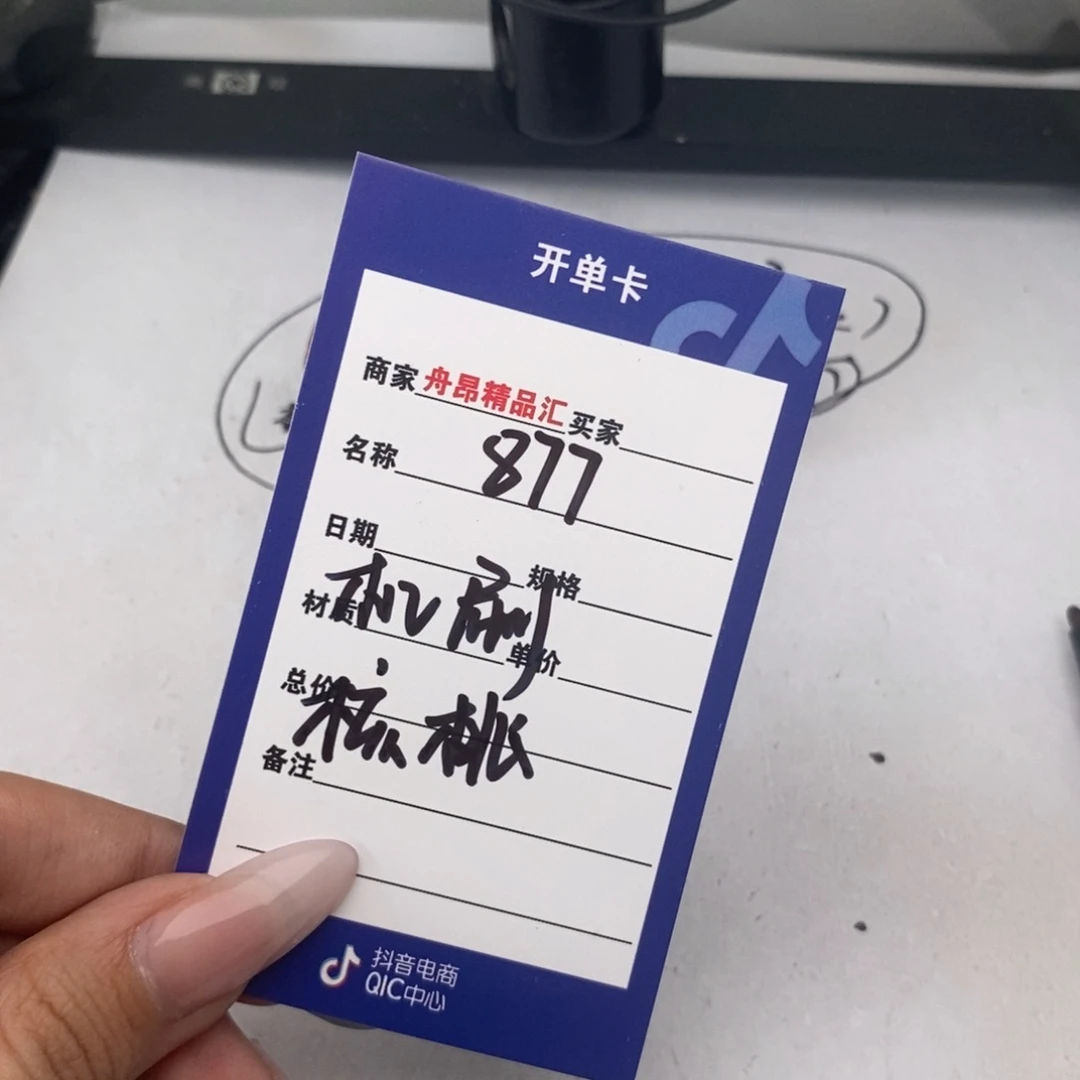 开单卡
商家 舟昂精品汇 买家
名称 877
日期 规格
机刷
材质 单价
总价
核桃
备注
抖音电商
QIC中心